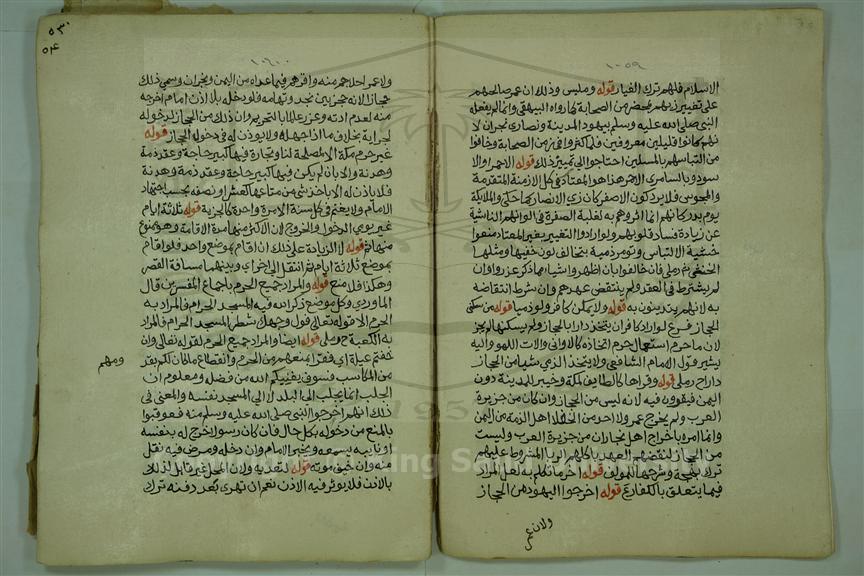 ١٠٥٩
الاسلام فلهم ترك الغيار قوله ومليس وذلك ان عمر صالحهم
على تغيير زيهم بمحضر من الصحابة كما رواه البيهقي وانما لم يفعله
النبي صلى الله عليه وسلم بيهود المدينة ونصارى نجران لا
نهم كانوا قليلين معروفين فلما كثروا في زمن الصحابة وخافوا
من التباسهم بالمسلمين احتاجوا الى تمييز ذلك قوله الاحمر والا
سود وبالسامري الاحمر هذا هو المعتاد في كل الازمنة المتقدمة
والمجوسي فلا يرد كون الاصفر كان زي الانصار كما حكي والملايكة
يوم بدر كانهم انما اثروهم به لغلبة الصفرة في الوانهم الناشية
عن زيادة فساد قلوبهم ولو ارادوا التغيير بغير المعتاد منعوا
خشية الالتباس وتومر ذمية بتخالف لون خفيها ومثلها
الخنثى شم رملي فان خالفوا بان اظهروا شيا مما ذكر عزروا وان
لم يشترط في العقد ولم ينتقض عهدهم وان شرط انتقاضه
به لانهم يتدينون به قوله ولا يمكن كافر ولو ذميا قوله من سكنى
الحجاز فرع لو اراد كافر ان يتخذ دارا بالحجاز ولم يسكنها لم يجز
لان ما حرم استعماله حرم اتخاذه كالاواني والات اللهو واليه
يشير قول الامام الشافعي ولا يتخذ الذي شيا من الحجاز
دارا ح رملي قوله وقراها كالطايف لمكة وخيبر للمدينة دون
اليمن فيقرون فيه لانه ليس من الحجاز وان كان من جزيرة
العرب ولم يخرج عمر ولا احد من الخلفا اهل الذمة من اليمن
وانما امره باخراج اهل نجران من جزيرة العرب وليست
من الحجاز لنقضهم العهد باكلهم الربا المشروط عليهم
ترك قوله اخر ما تكلم به لعل المراد
فيما يتعلق بالكفار قوله اخرجوا اليهود من الحجاز
ولان عمر
٥٣٠
٥٤
١٠٦٠
ولا عمر اجلاهم منه واقرهم فيما عداه من اليمن ونجران وسمي ذلك
حجازا لانه حجز بين نجد وتهامه فلو دخله بلا اذن امام اخرجه
منه لعدم اذنه وعزر عالما بالتحريم وان ذلك من الحجاز لدخوله
لجراية بخلاف ما اذا جهله ولا يوذن له في دخوله الحجاز قوله
غير حرم مكة الا لمصلحة لنا وتجارة فيها كبير حاجة وعقد ذمة
وهدنة والا بان لم يكن فيها كبير حاجة وعقد ذمة وهدنة
فلا ياذن له الا باخذ شي من متاعها كالعشر او نصفه بحسب اجتهاد
الامام ولا يغنم في كل سنة الا مرة واحدة كالجزية قوله ثلاثة ايام
غير يومي الدخول والخروج لان الاكثر منها مدة الاقامة وهو ممنوع
منها ثم قوله لا الزيادة على ذلك ان اقام بموضع واحد فلو اقام
بموضع ثلاثة ايام ثم انتقل الى اخر اي وبينهما مسافة القصر
وهكذا فلا منع قوله والمراد جميع الحرم باجماع المفسرين قال
الماوردي وكل موضع ذكر الله فيه المسجد الحرام فالمراد به
الحرم الا قوله تعالى فول وجهك شطر المسجد الحرام فالمراد
به الكعبة ح رملي قوله ايضا والمراد جميع الحرم لقوله تعالى وان
خفتم عيلة اي فقرا بمنعهم من الحرم وانقطاع ما كان لكم بقد
ومهم
من المكاسب فسوف يغنيكم الله من فضله ومعلوم ان
الجلب انما يجلب الى البلد لا الى المسجد نفسه والمعنى في
ذلك انهم اخرجوا النبي صلى الله عليه وسلم منه فعوقبوا
بالمنع من دخوله بكل حال فان كان رسولا خرج له بنفسه
او نايبه يسمعه ويخبر الامام وان دخله ومرض فيه نقل
منه وان خيف موته قوله لتعديه ولان المحل غير قابل لذلك
بالاذن فلا يوثر فيه الاذن نعم ان تهرى بعد دفنه ترك